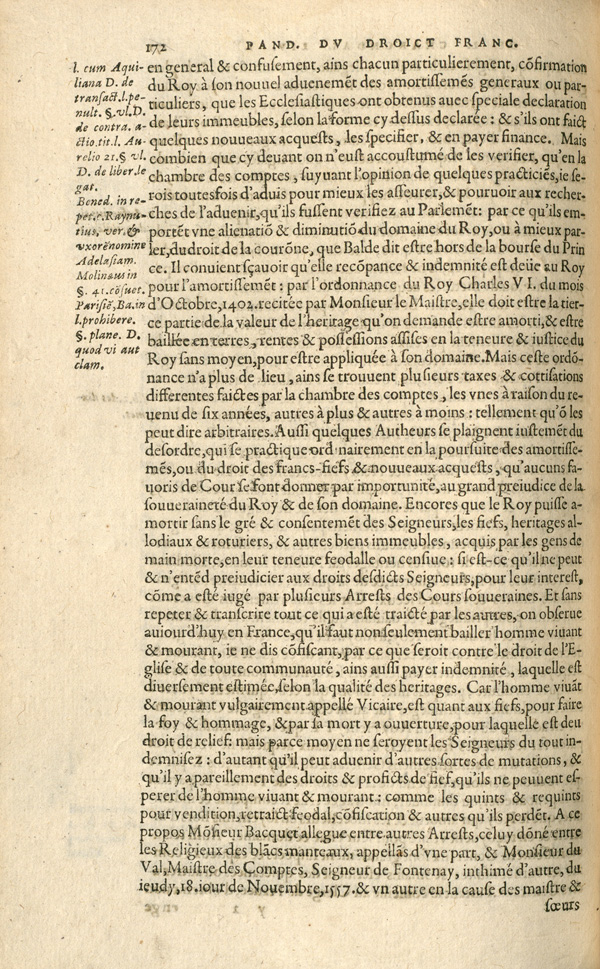 172 PAND. DV DROICT FRANC.
l. cum Aqui-
liana D. de
transact. l. pe-
nult. §. vl. D.
de contra. a-
ctio. tit. l. Au-
relio 21. § vl.
D. de liber. le
gat.
Bened. in re-
pet. c. Raynu-
tius, ver. &
vxorē nomine
Adelasiam.
Molinæus in
§. 41. cōsuet.
Parisiē, Ba. in
l. prohibere.
§. plane. D.
quod vi aut
clam.
en general & confusement, ains chacun particulierement, cōfirmation
du Roy à son nouuel aduenemēt des amortissemēs generaux ou par-
ticuliers, que les Ecclesiastiques ont obtenus auec speciale declaration
de leurs immeubles, selon la forme cy dessus declarée: & s'ils ont faict
quelques nouueaux acquests, les specifier, & en payer finance. Mais
combien que cy deuant on n'eust accoustumé de les verifier, qu'en la
chambre des comptes, suyuant l'opinion de quelques practiciēs, ie se-
rois toutesfois d'aduis pour mieux les asseurer, & pouruoir aux recher-
ches de l'aduenir, qu'ils fussent verifiez au Parlemēt: par ce qu'ils em-
portēt vne alienatiō & diminutiō du domaine du Roy, ou à mieux par-
ler, du droit de la courōne, que Balde dit estre hors de la bourse du Prin
ce. Il conuient sçauoir qu'elle recōpance & indemnité est deüe au Roy
pour l'amortissemēt: par l'ordonnance du Roy Charles VI. du mois
d'Octobre, 1402. recitée par Monsieur le Maistre, elle doit estre la tier-
ce partie de la valeur de l'heritage qu'on demande estre amorti, & estre
baillée en terres, rentes & possessions assises en la teneure & iustice du
Roy sans moyen, pour estre appliquée à son domaine. Mais ceste ordō-
nance n'a plus de lieu, ains se trouuent plusieurs taxes & cottisations
differentes faictes par la chambre des comptes, les vnes à raison du re-
uenu de six années, autres à plus & autres à moins: tellement qu'ō les
peut dire arbitraires. Aussi quelques Autheurs se plaignent iustemēt du
desordre, qui se practique ordinairement en la poursuite des amortisse-
mēs, ou du droit des francs-fiefs & nouueaux acquests, qu'aucuns fa-
uoris de Cour se font donner par importunité, au grand preiudice de la
souueraineté du Roy & de son domaine. Encores que le Roy puisse a-
mortir sans le gré & consentemēt des Seigneurs, les fiefs, heritages al-
lodiaux & roturiers, & autres biens immeubles, acquis par les gens de
main morte, en leur teneure feodalle ou censiue: si est-ce qu'il ne peut
& n'entēd preiudicier aux droits desdicts Seigneurs, pour leur interest,
cōme a esté iugé par plusieurs Arrests des Cours souueraines. Et sans
repeter & transcrire tout ce qui a esté traicté par les autres, on obserue
auiourd'huy en France, qu'il faut non seulement bailler homme viuant
& mourant, ie ne dis cōfiscant, par ce que seroit contre le droit de l'E-
glise & de toute communauté, ains aussi payer indemnité, laquelle est
diuersement estimée, selon la qualité des heritages. Car l'homme viuāt
& mourant vulgairement appellé Vicaire, est quant aux fiefs, pour faire
la foy & hommage, & par sa mort y a ouuerture, pour laquelle est deu
droit de relief: mais par ce moyen ne seroyent les Seigneurs du tout in-
demnisez: d'autant qu'il peut aduenir d'autres sortes de mutations, &
qu'il y a pareillement des droits & proficts de fief, qu'ils ne peuuent es-
perer de l'homme viuant & mourant: comme les quints & requints
pour vendition, retraict feodal, cōfiscation & autres qu'ils perdēt. A ce
propos Mōsieur Bacquet allegue entre autres Arrests, celuy dōné entre
les Religieux des blācs manteaux, appellās d'vne part, & Monsieur du
Val, Maistre des Comptes, Seigneur de Fontenay, inthimé d'autre, du
ieudy, 18. iour de Nouembre, 1557. & vn autre en la cause des maistre &
sœurs